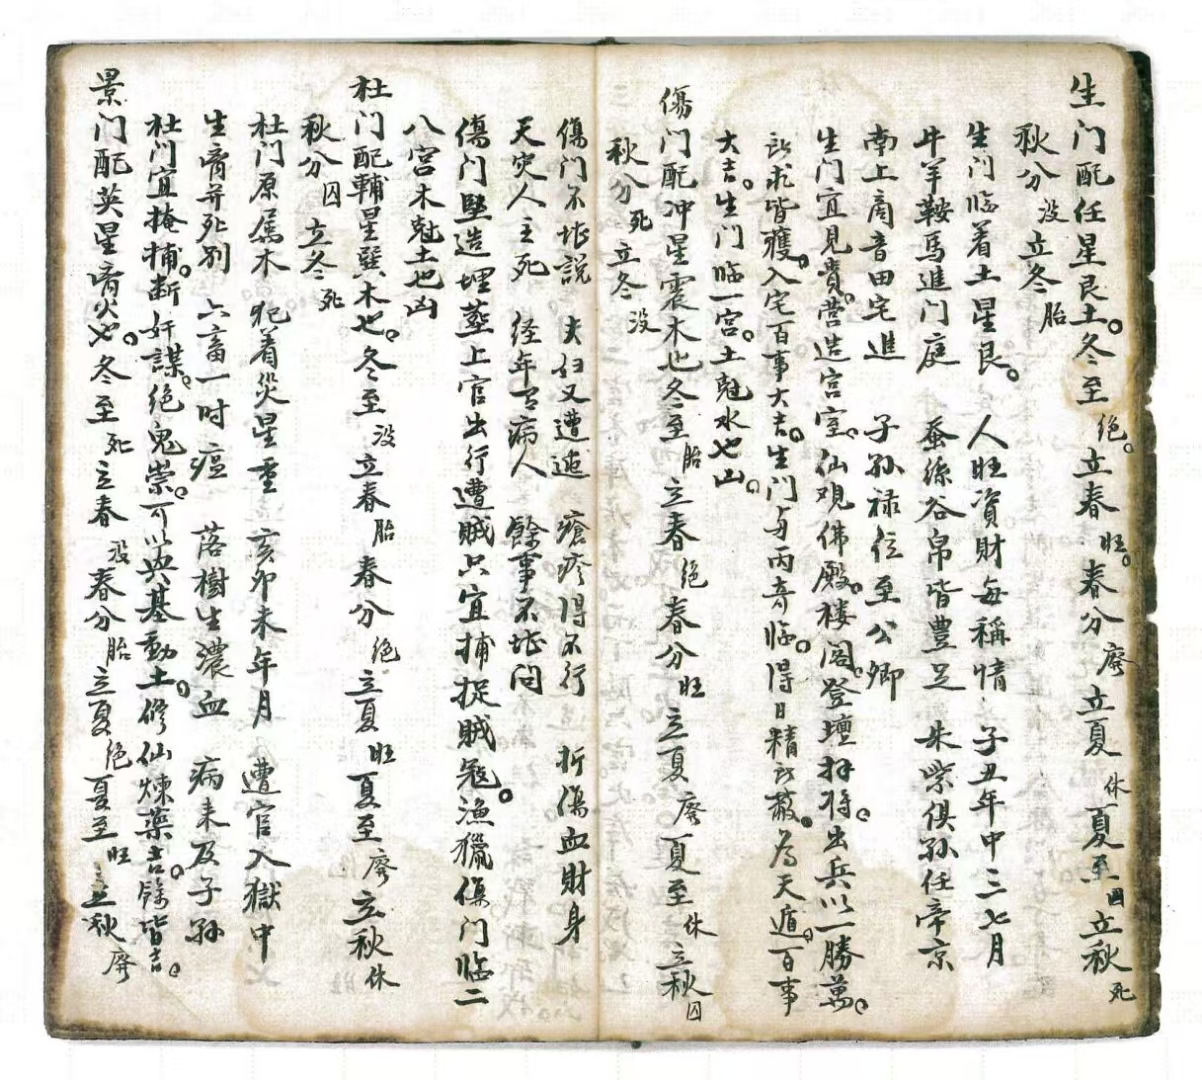 生门配任星艮土。冬至絶。立春旺。春分廢立夏休夏至囚立秋死
秋分没立冬胎
生门临着土星艮。人旺資財每稱情 子丑年中三七月
牛羊鞍馬進门庭 蚕絲谷帛皆豊足 朱紫俱孙任帝京
南上商音田宅進 子孫禄位至公卿
生门宜見貴。营造宫室。仙观佛殿。楼阁。登壇拜将。出兵以一勝萬。
所求皆獲。入宅百事大吉。生门与丙奇临。得日精所蔽。为天遁。百事
大吉。生门临一宫。土尅水也凶。
傷门配冲星震木也冬至胎立春絶春分旺立夏廢夏至休立秋囚
秋分死立冬没
傷门不堪説 夫妇又遭迍 瘡疼得不行 折傷血財身
天灾人主死 经年有病人 餘事不堪问
傷门竪造埋塟上官出行遭贼只宜捕捉贼寇。渔獵傷门临二
八宫木尅土也凶
杜门配輔星巽木也。冬至没立春胎春分絶立夏旺夏至廢立秋休
秋分囚立冬死
杜门原属木 犯着災星重 亥卯未年月 遭官入獄中
生离并死别 六畜一时瘟 落樹生濃血 病来及子孙
杜门宜掩捕。断奸謀。絶鬼祟。可以典基動土。修仙煉藥吉。餘皆吉。
景门配英星离火也。冬至死立春没春分胎立夏絶夏至旺立秋廢